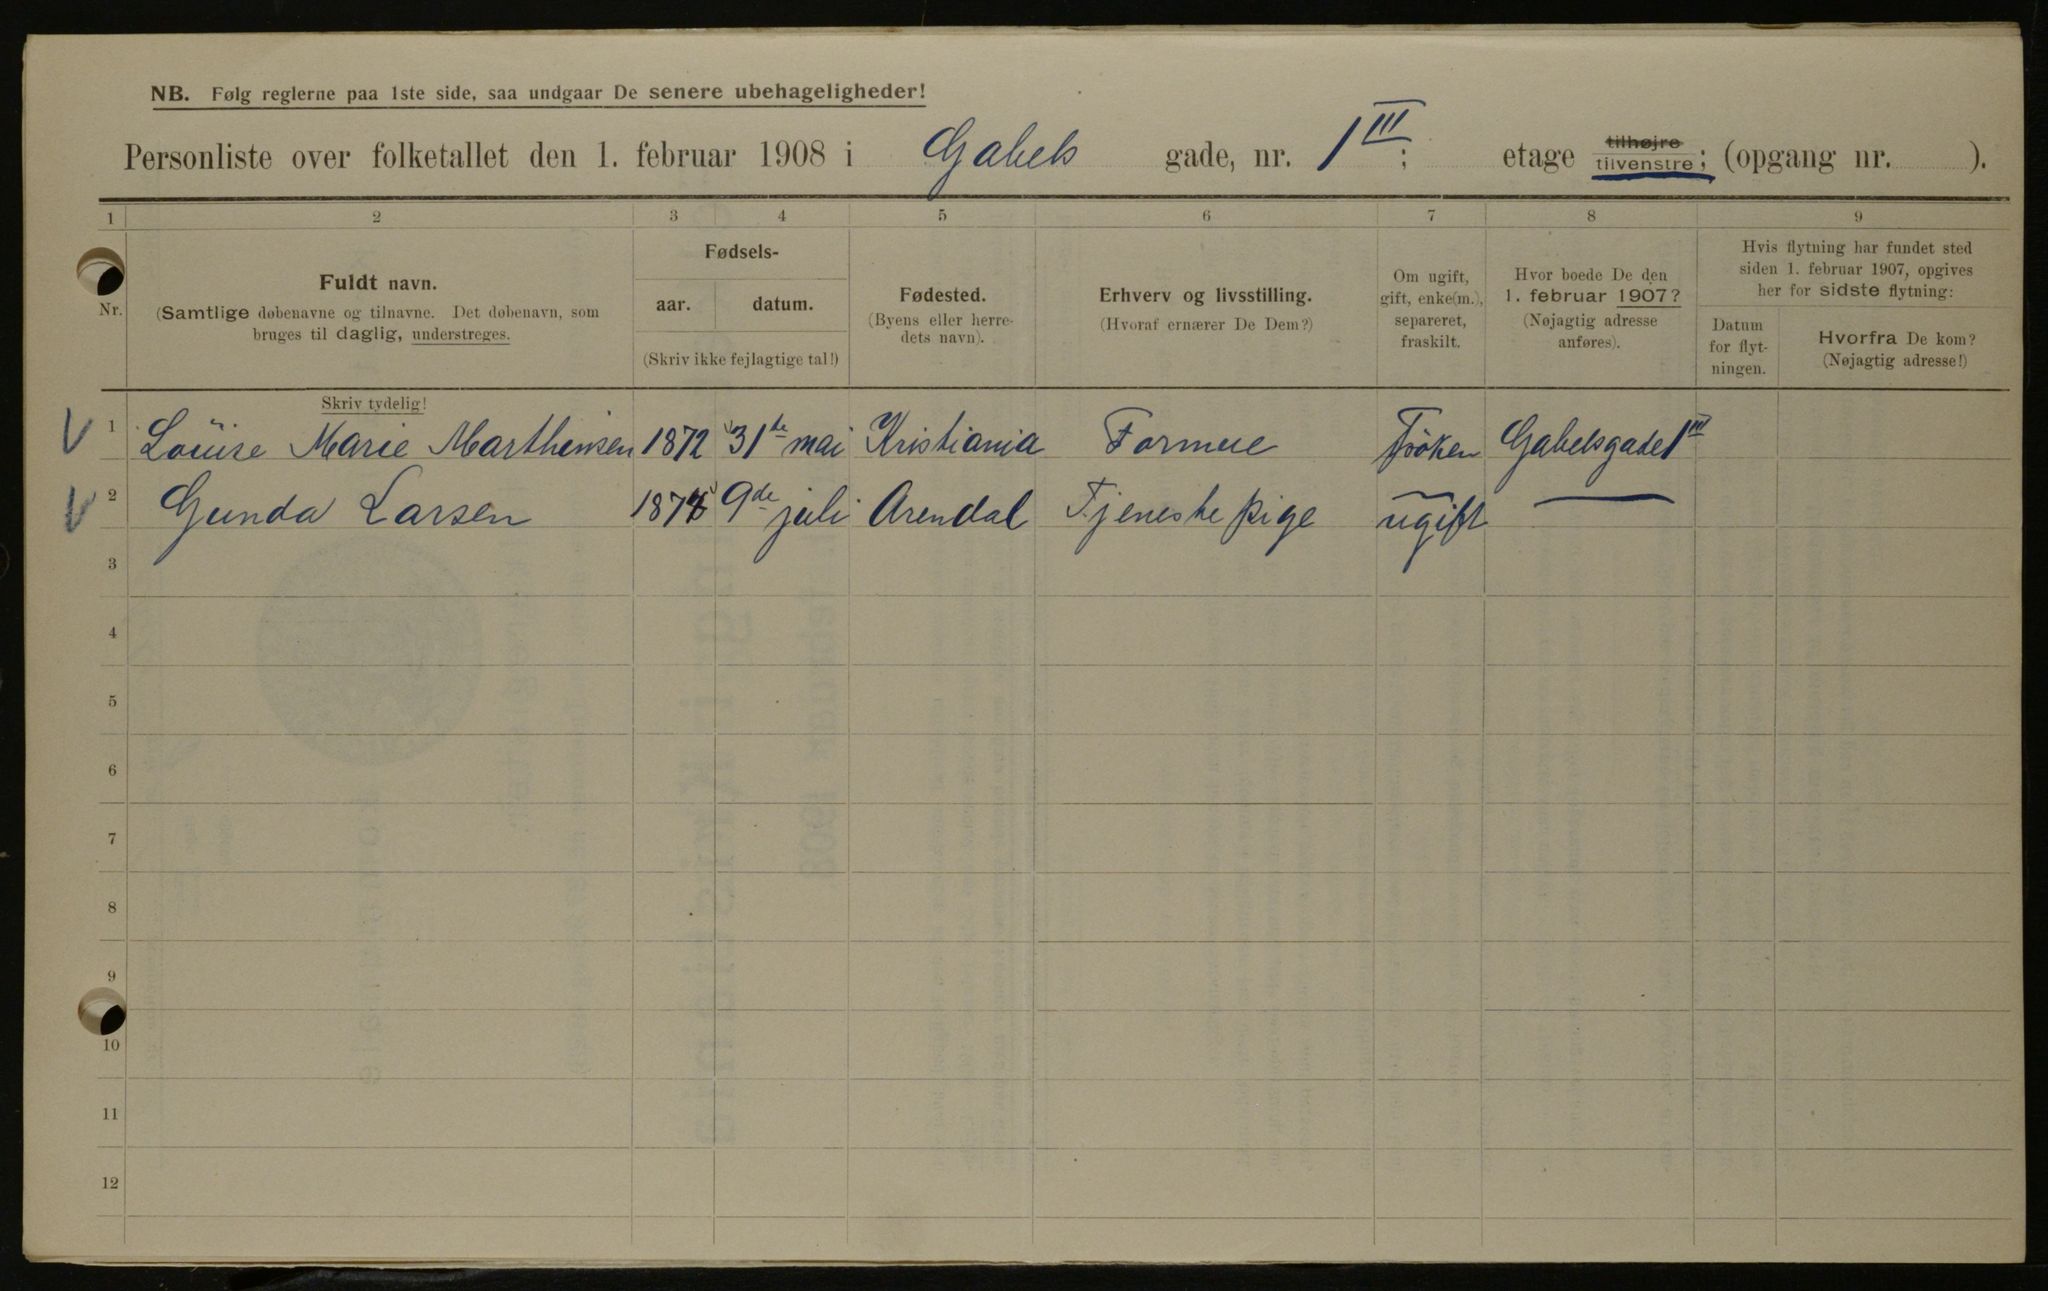 NB. Følg reglerne paa 1ste side, saa undgaar De senere ubehageligheder!
Personliste over folketallet den 1. februar 1908 i Gabels gade, nr. 1 III; etage tilhøjre tilvenstre; (opgang nr. ).
1 2 3 4 5 6 7 8 9
Nr.
Fuldt navn.
(Samtlige døbenavne og tilnavne. Det døbenavn, som
bruges til daglig, understreges.
Skriv tydelig!
Fødsels-
aar. datum.
(Skriv ikke fejlagtige tal!)
Fødested.
(Byens eller herre-
dets navn).
Erhverv og livsstilling.
(Hvoraf ernærer De Dem?)
Om ugift,
gift, enke(m.),
separeret,
fraskilt.
Hvor boede De den
1. februar 1907?
(Nøjagtig adresse
anføres).
Hvis flytning har fundet sted
siden 1. februar 1907, opgives
her for sidste flytning:
Datum
for flyt-
ningen.
Hvorfra De kom?
(Nøjagtig adresse!)
1 Louise Marie Marthinsen 1872 31te mai Kristiania Formue Frøken Gabelsgade 1 III
2 Gunda Larsen 9de juli Arendal Tjeneste pige ugift —
3
4
5
6
7
8
9
10
11
12